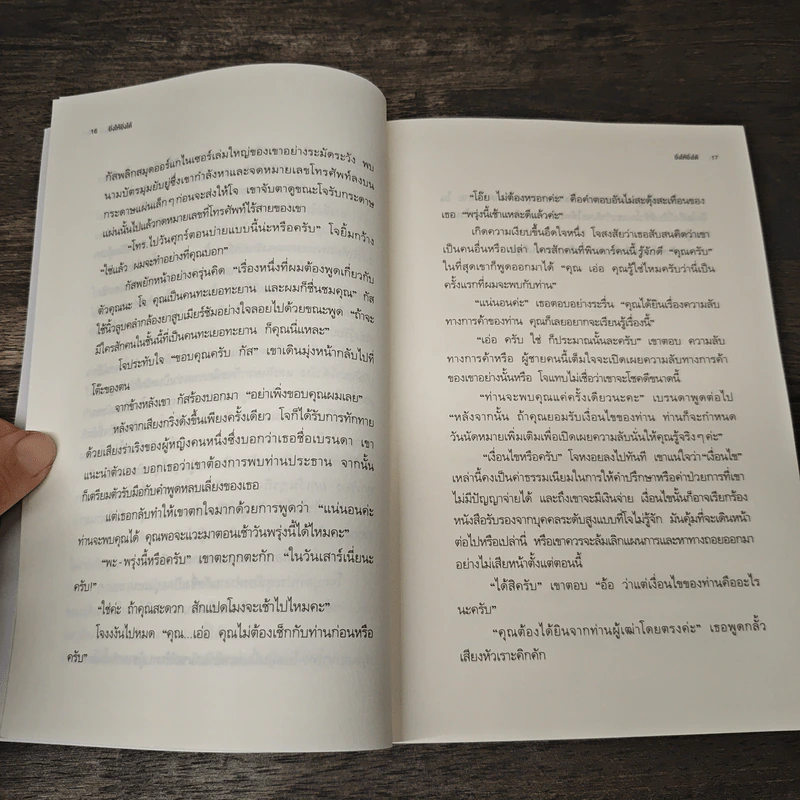 16 ยิ่งให้ยิ่งได้
กัสพลิกสมุดออร์แกไนเซอร์เล่มใหญ่ของเขาอย่างระมัดระวัง พบ
นามบัตรมุมยับยู่ซึ่งเขากำลังหาและจดหมายเลขโทรศัพท์ลงบน
กระดาษแผ่นเล็กๆ ก่อนจะส่งให้โจ เขาจับตาดูขณะโจรับกระดาษ
แผ่นนั้นไปแล้วกดหมายเลขที่โทรศัพท์ไร้สายของเขา
“โทร.ไปวันศุกร์ตอนบ่ายแบบนี้น่ะหรือครับ” โจยิ้มกว้าง
“ใช่แล้ว ผมจะทำอย่างที่คุณบอก”
กัสพยักหน้าอย่างครุ่นคิด “เรื่องหนึ่งที่ผมต้องพูดเกี่ยวกับ
ตัวคุณนะ โจ คุณเป็นคนทะเยอทะยาน และผมก็ชื่นชมคุณ” กัส
ใช้นิ้วลูบคลำกล้องยาสูบเมียร์ชัมอย่างใจลอยไปด้วยขณะพูด “ถ้าจะ
มีใครสักคนในชั้นนี้ที่เป็นคนทะเยอทะยาน ก็คุณนี่แหละ”
โจประทับใจ “ขอบคุณครับ กัส” เขาเดินมุ่งหน้ากลับไปที่
โต๊ะของตน
จากข้างหลังเขา กัสร้องบอกมา “อย่าเพิ่งขอบคุณผมเลย”
หลังจากเสียงกริ่งดังขึ้นเพียงครั้งเดียว โจก็ได้รับการทักทาย
ด้วยเสียงร่าเริงของผู้หญิงคนหนึ่งซึ่งบอกว่าเธอชื่อเบรนดา เขา
แนะนำตัวเอง บอกเธอว่าเขาต้องการพบท่านประธาน จากนั้น
ก็เตรียมตัวรับมือกับคำพูดหลบเลี่ยงของเธอ
แต่เธอกลับทำให้เขาตกใจมากด้วยการพูดว่า “แน่นอนค่ะ
ท่านจะพบคุณได้ คุณพอจะแวะมาตอนเช้าวันพรุ่งนี้ได้ไหมคะ”
“พะ-พรุ่งนี้หรือครับ” เขาตะกุกตะกัก “ในวันเสาร์เนี่ยนะ
ครับ!”
“ใช่ค่ะ ถ้าคุณสะดวก สักแปดโมงจะเช้าไปไหมคะ”
โจงงงันไปหมด “คุณ...เอ่อ คุณไม่ต้องเช็กกับท่านก่อนหรือ
ครับ”
ยิ่งให้ยิ่งได้ 17
“โอ๊ย ไม่ต้องหรอกค่ะ” คือคำตอบอันไม่สะดุ้งสะเทือนของ
เธอ “พรุ่งนี้เช้าแหละดีแล้วค่ะ”
เกิดความเงียบขึ้นอึดใจหนึ่ง โจสงสัยว่าเธอสับสนคิดว่าเขา
เป็นคนอื่นหรือเปล่า ใครสักคนที่พินดาร์คนนี้รู้จักดี “คุณครับ”
ในที่สุดเขาก็พูดออกมาได้ “คุณ เอ่อ คุณรู้ใช่ไหมครับว่านี่เป็น
ครั้งแรกที่ผมจะพบกับท่าน”
“แน่นอนค่ะ” เธอตอบอย่างระรื่น “คุณได้ยินเรื่องความลับ
ทางการค้าของท่าน คุณก็เลยอยากจะเรียนรู้เรื่องนี้”
“เอ่อ ครับ ใช่ ก็ประมาณนั้นละครับ” เขาตอบ ความลับ
ทางการค้าหรือ ผู้ชายคนนี้เต็มใจจะเปิดเผยความลับทางการค้า
ของเขาอย่างนั้นหรือ โจแทบไม่เชื่อว่าเขาจะโชคดีขนาดนี้
“ท่านจะพบคุณแค่ครั้งเดียวนะคะ” เบรนดาพูดต่อไป
“หลังจากนั้น ถ้าคุณยอมรับเงื่อนไขของท่าน ท่านก็จะกำหนด
วันนัดหมายเพิ่มเติมเพื่อเปิดเผยความลับนั่นให้คุณรู้จริงๆ ค่ะ”
“เงื่อนไขหรือครับ” โจหงอยลงไปทันที เขาแน่ใจว่า“เงื่อนไข”
เหล่านี้คงเป็นค่าธรรมเนียมในการให้คำปรึกษาหรือค่าป่วยการที่เขา
ไม่มีปัญญาจ่ายได้ และถึงเขาจะมีเงินจ่าย เงื่อนไขนั้นก็อาจเรียกร้อง
หนังสือรับรองจากบุคคลระดับสูงแบบที่โจไม่รู้จัก มันคุ้มที่จะเดินหน้า
ต่อไปหรือเปล่านี่ หรือเขาควรจะล้มเลิกแผนการและหาทางถอยออกมา
อย่างไม่เสียหน้าตั้งแต่ตอนนี้
“ได้สิครับ” เขาตอบ “อ้อ ว่าแต่เงื่อนไขของท่านคืออะไร
นะครับ”
“คุณต้องได้ยินจากท่านผู้เฒ่าโดยตรงค่ะ” เธอพูดกลั้ว
เสียงหัวเราะคิกคัก